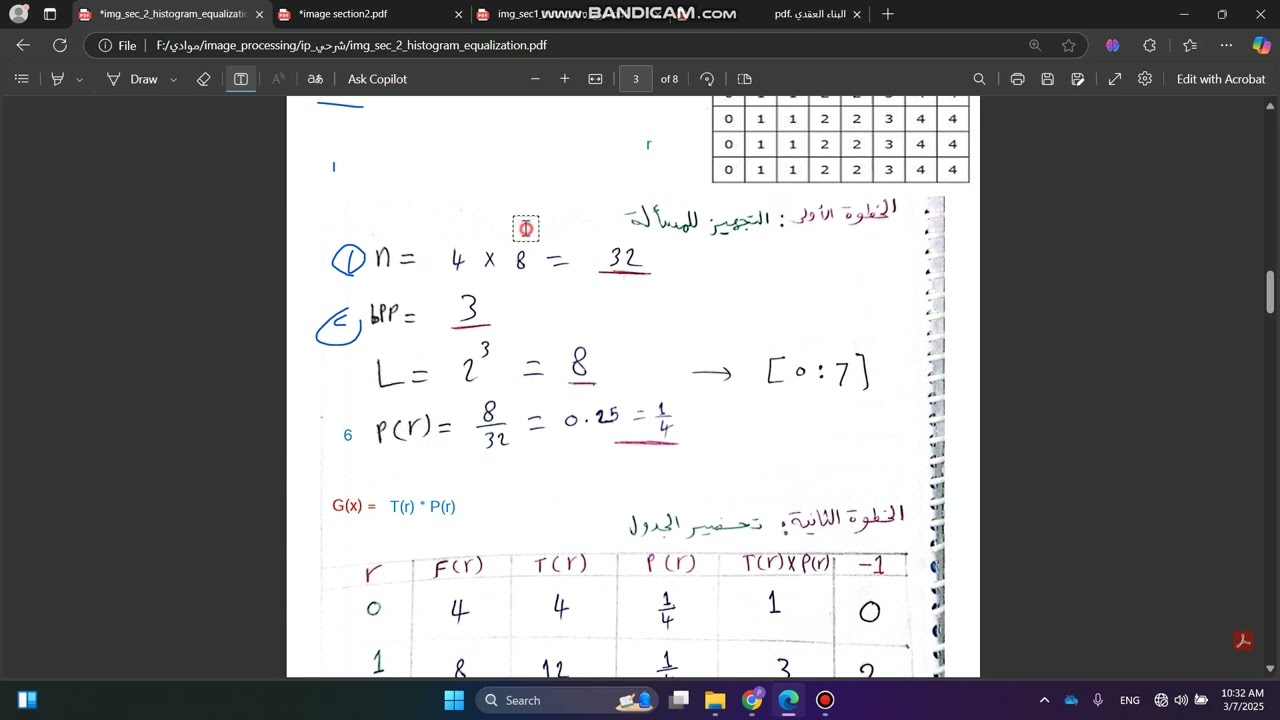 www.BANDICAM.com
*img_sec_2_histogram_equalizatio
*image section2.pdf
img_sec1_
البناء العقدي .pdf
File
F:/موادي/image_processing/ip_شرحي/img_sec_2_histogram_equalization.pdf
Draw
Ask Copilot
3 of 8
Edit with Acrobat
0 1 1 2 2 3 4 4
0 1 1 2 2 3 4 4
0 1 1 2 2 3 4 4
r
I
الخطوة الأولى : التجهيز للمسألة
Φ
① n = 4 x 8 = 32
bPP = 3
L = 2³ = 8 → [0:7]
6 P(r) = 8/32 = 0.25 = 1/4
G(x) = T(r) * P(r)
الخطوة الثانية: تحضير الجدول
r F(r) T(r) P(r) T(r)xP(r) -1
0 4 4 1/4 1 0
1 8 12 3
Search
ENG
10:32 AM
3/7/2025